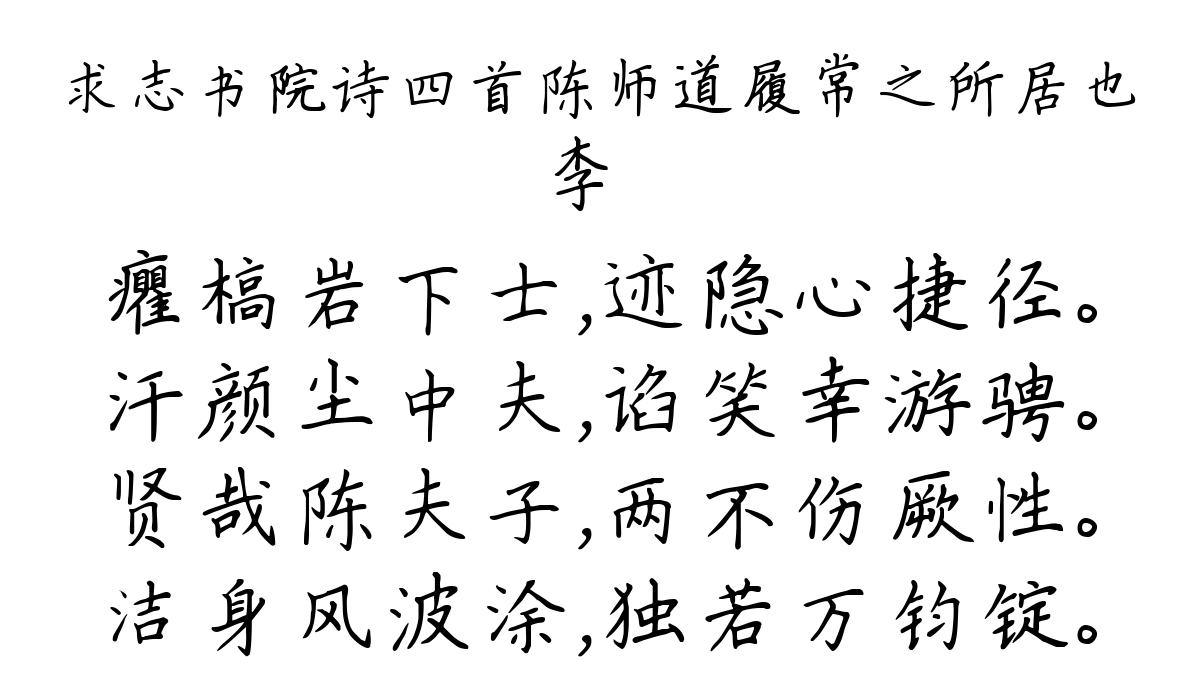 求志书院诗四首陈师道履常之所居也
李
癯槁岩下士,迹隐心捷径。
汗颜尘中夫,谄笑幸游骋。
贤哉陈夫子,两不伤厥性。
洁身风波涂,独若万钧锭。